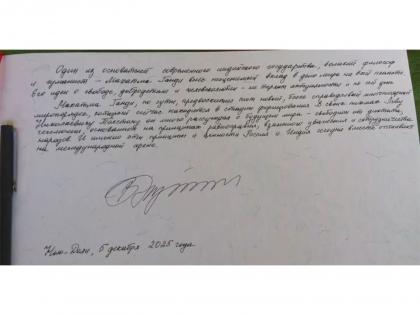 Один из основателей современного индийского государства, великий философ
и гуманист – Махатма Ганди внёс неоценимый вклад в дело мира на всей планете.
Его идеи о свободе, добродетели и человеколюбии – не теряют актуальности и по сей день
Махатма Ганди, по сути, предвосхитил тот новый, более справедливый многополярный
миропорядок, который сейчас находится в стадии формирования. В своих письмах Льву
Николаевичу Толстому он много рассуждал о будущем мира – свободном от диктата,
гегемонии, основанном на принципах равноправия, взаимного уважения и сотрудничества
народов. И именно эти принципы и ценности Россия и Индия сегодня вместе отстаивают
на международной арене.
Нью-Дели, 5 декабря 2025 года.